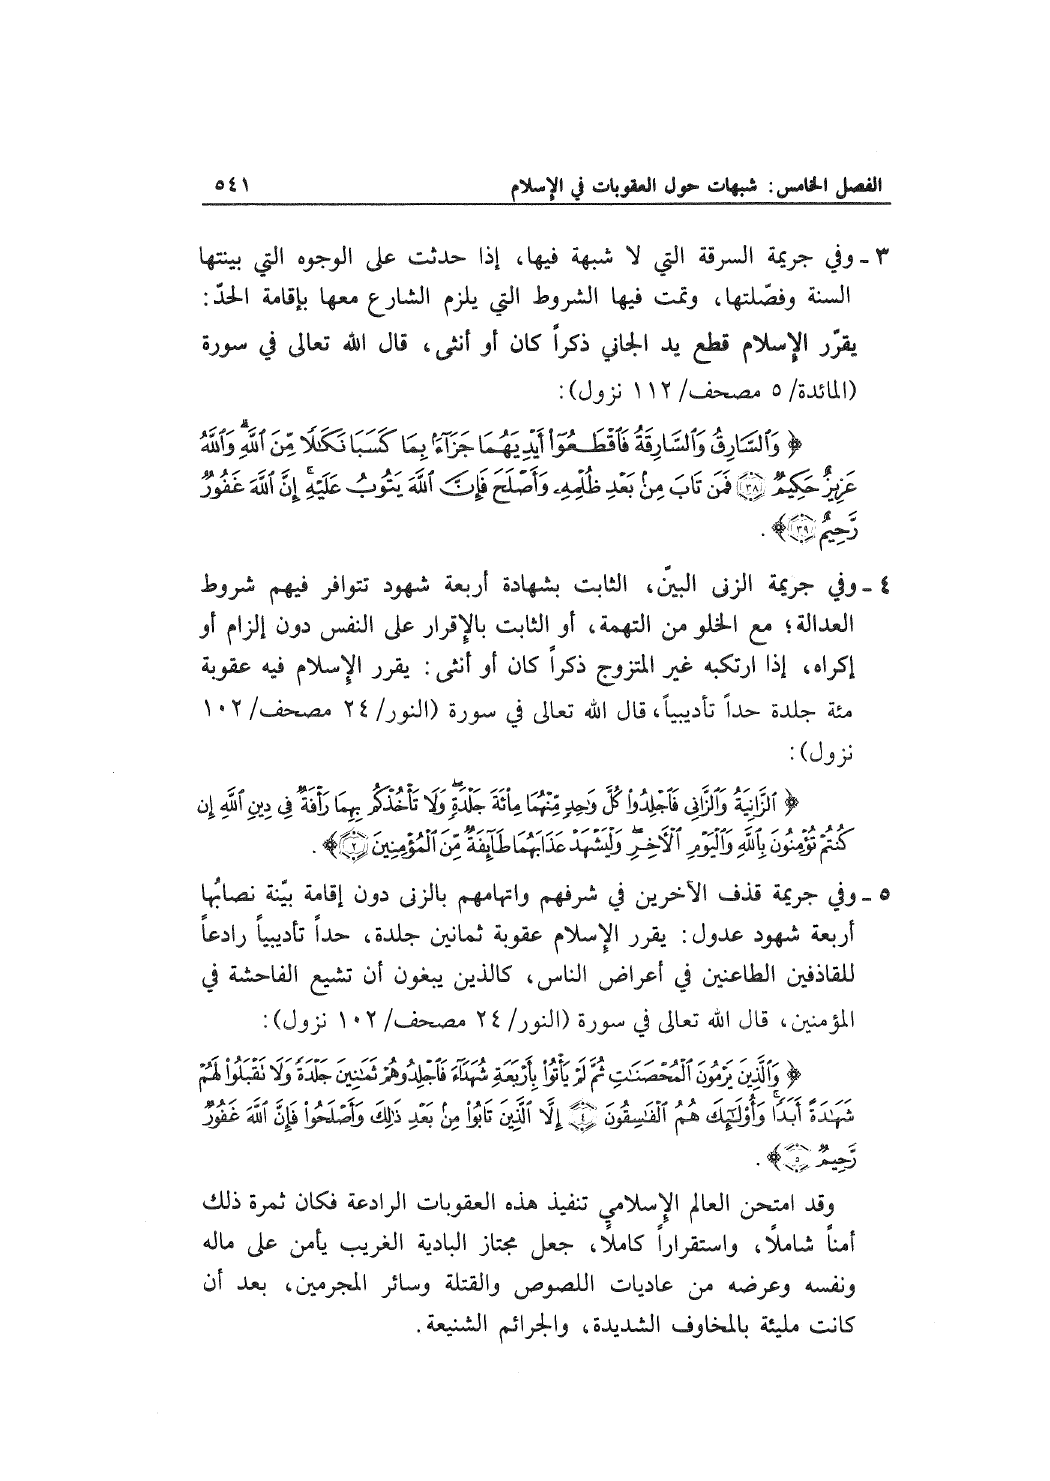 الفصل الخامس: شبهات حول العقوبات في الإسلام ٥٤١
٣ ـ وفي جريمة السرقة التي لا شبهة فيها، إذا حدثت على الوجوه التي بينتها
السنة وفصّلتها، وتمت فيها الشروط التي يلزم الشارع معها بإقامة الحدّ:
يقرّر الإسلام قطع يد الجاني ذكراً كان أو أنثى، قال الله تعالى في سورة
(المائدة/ ٥ مصحف/ ١١٢ نزول):
﴿ وَٱلسَّارِقُ وَٱلسَّارِقَةُ فَٱقْطَعُوٓا۟ أَيْدِيَهُمَا جَزَآءًۢ بِمَا كَسَبَا نَكَٰلًا مِّنَ ٱللَّهِ ۗ وَٱللَّهُ
عَزِيزٌ حَكِيمٌ ٣٨ فَمَن تَابَ مِنۢ بَعْدِ ظُلْمِهِۦ وَأَصْلَحَ فَإِنَّ ٱللَّهَ يَتُوبُ عَلَيْهِ ۚ إِنَّ ٱللَّهَ غَفُورٌ
رَّحِيمٌ ٣٩ ﴾ .
٤ ـ وفي جريمة الزنى البيّن، الثابت بشهادة أربعة شهود تتوافر فيهم شروط
العدالة؛ مع الخلو من التهمة، أو الثابت بالإقرار على النفس دون إلزام أو
إكراه، إذا ارتكبه غير المتزوج ذكراً كان أو أنثى: يقرر الإسلام فيه عقوبة
مئة جلدة حداً تأديبياً، قال الله تعالى في سورة (النور/ ٢٤ مصحف/ ١٠٢
نزول):
﴿ ٱلزَّانِيَةُ وَٱلزَّانِى فَٱجْلِدُوا۟ كُلَّ وَٰحِدٍ مِّنْهُمَا مِا۟ئَةَ جَلْدَةٍ ۖ وَلَا تَأْخُذْكُم بِهِمَا رَأْفَةٌ فِى دِينِ ٱللَّهِ إِن
كُنتُمْ تُؤْمِنُونَ بِٱللَّهِ وَٱلْيَوْمِ ٱلْءَاخِرِ ۖ وَلْيَشْهَدْ عَذَابَهُمَا طَآئِفَةٌ مِّنَ ٱلْمُؤْمِنِينَ ٢ ﴾ .
٥ ـ وفي جريمة قذف الآخرين في شرفهم واتهامهم بالزنى دون إقامة بيّنة نصابُها
أربعة شهود عدول: يقرر الإسلام عقوبة ثمانين جلدة، حداً تأديبياً رادعاً
للقاذفين الطاعنين في أعراض الناس، كالذين يبغون أن تشيع الفاحشة في
المؤمنين، قال الله تعالى في سورة (النور/ ٢٤ مصحف/ ١٠٢ نزول):
﴿ وَٱلَّذِينَ يَرْمُونَ ٱلْمُحْصَنَٰتِ ثُمَّ لَمْ يَأْتُوا۟ بِأَرْبَعَةِ شُهَدَآءَ فَٱجْلِدُوهُمْ ثَمَٰنِينَ جَلْدَةً وَلَا تَقْبَلُوا۟ لَهُمْ
شَهَٰدَةً أَبَدًا ۚ وَأُو۟لَٰٓئِكَ هُمُ ٱلْفَٰسِقُونَ ٤ إِلَّا ٱلَّذِينَ تَابُوا۟ مِنۢ بَعْدِ ذَٰلِكَ وَأَصْلَحُوا۟ فَإِنَّ ٱللَّهَ غَفُورٌ
رَّحِيمٌ ٥ ﴾ .
وقد امتحن العالم الإسلامي تنفيذ هذه العقوبات الرادعة فكان ثمرة ذلك
أمناً شاملًا، واستقراراً كاملًا، جعل مجتاز البادية الغريب يأمن على ماله
ونفسه وعرضه من عاديات اللصوص والقتلة وسائر المجرمين، بعد أن
كانت مليئة بالمخاوف الشديدة، والجرائم الشنيعة.